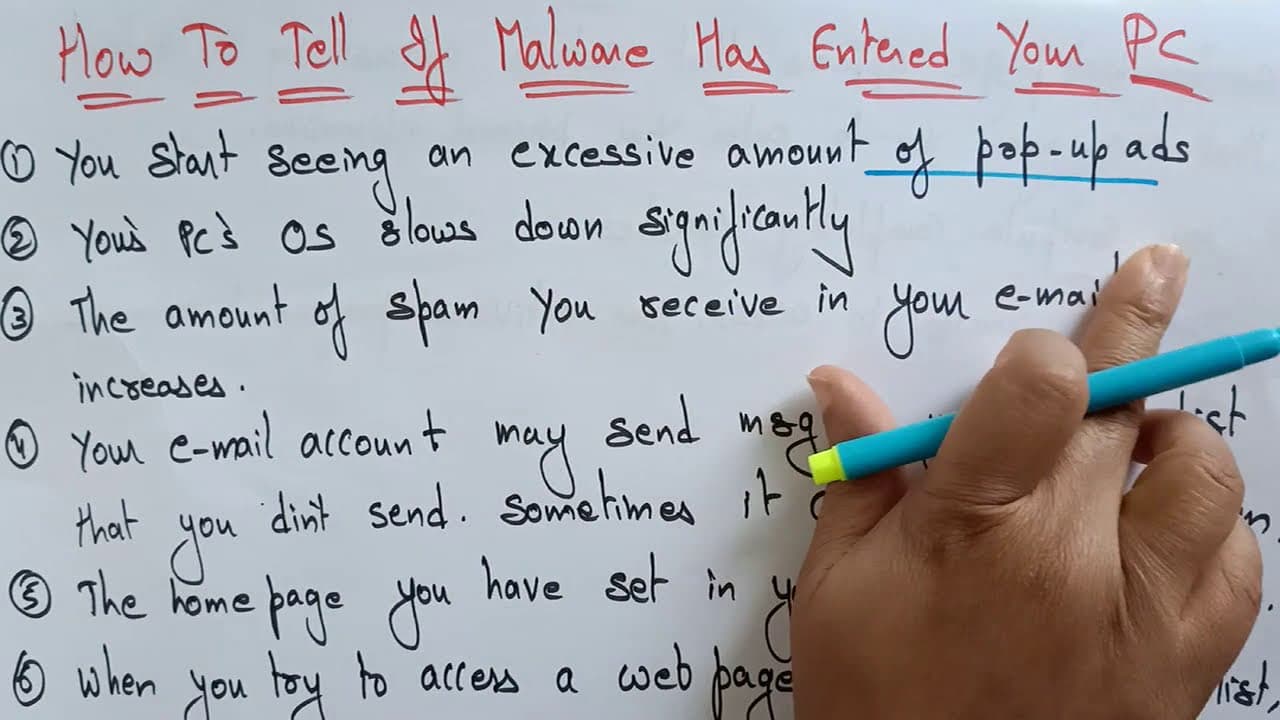 How To Tell If Malware Has Entered Your PC
① You start seeing an excessive amount of pop-up ads
② Your's PC's OS slows down significantly
③ The amount of spam you receive in your e-mail
increases.
④ Your e-mail account may send msg list
that you din't send. Sometimes it
⑤ The home page you have set in
⑥ When you try to access a web page list,